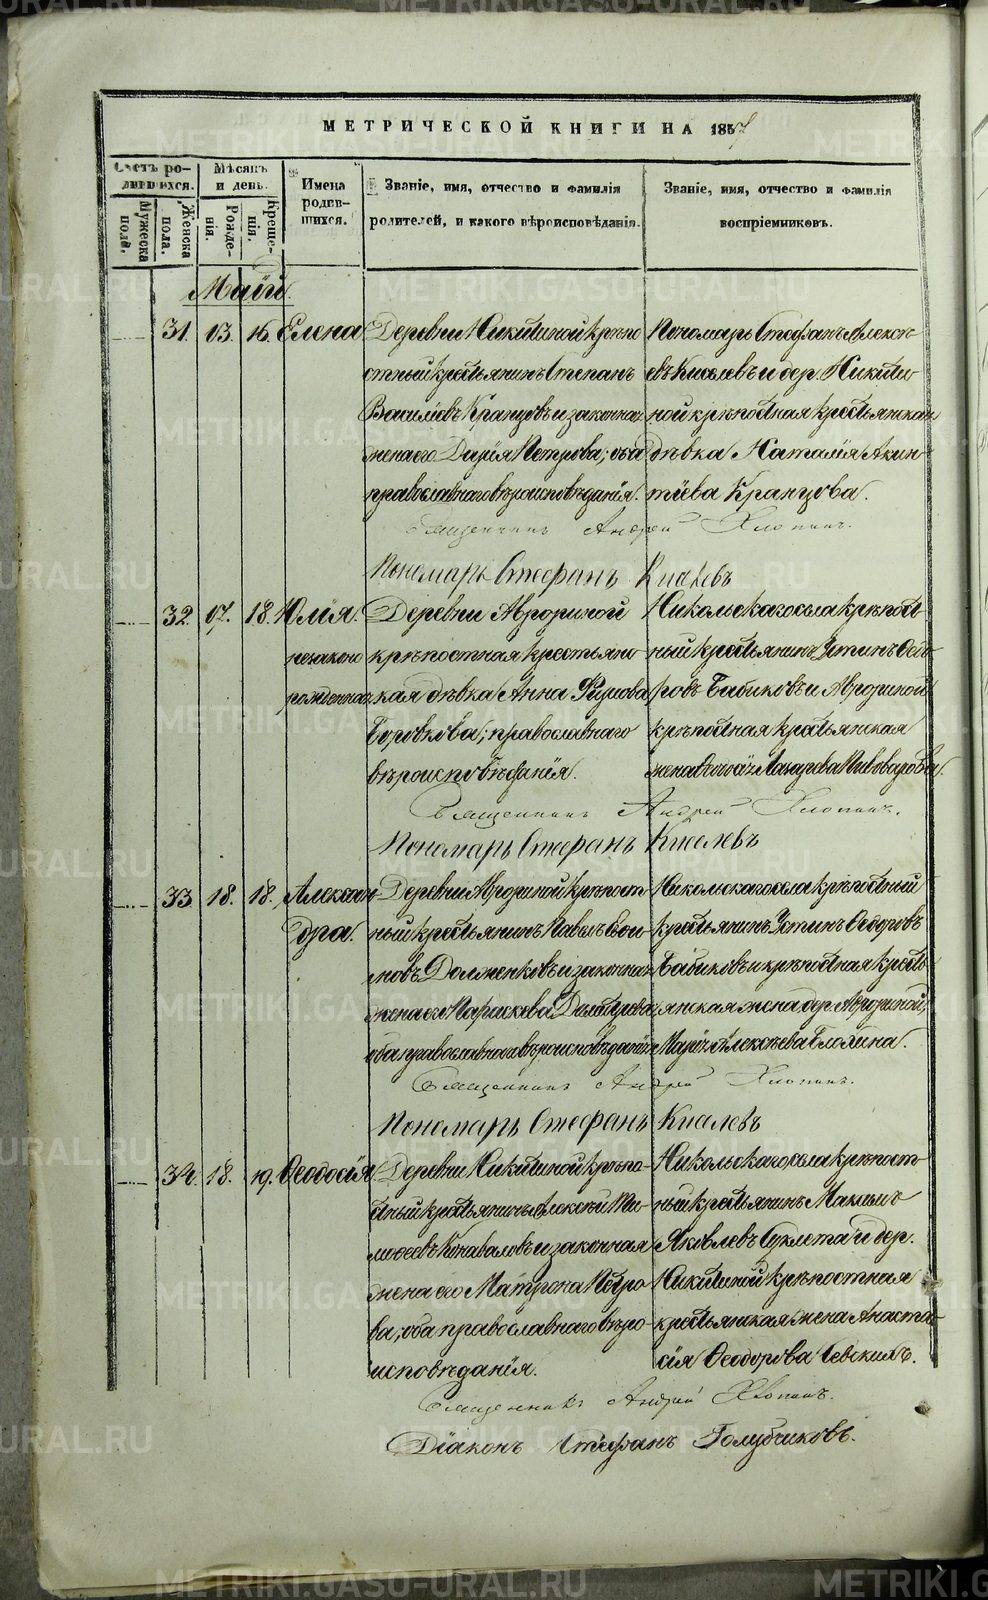 МЕТРИЧЕСКОЙ КНИГИ НА 1857
Счетъ родившихся.
Мужеска пола.
Женска пола.
Мѣсяцъ и день.
Рожденія.
Крещенія.
Имена родившихся.
Званіе, имя, отчество и фамилія
родителей, и какого вѣроисповѣданія.
Званіе, имя, отчество и фамилія
воспріемниковъ.
Маій
31. 13. 16. Елена
Деревни Никитиной крѣпо
стный крестьянинъ Степанъ
Васильевъ Кранцовъ и законная
жена его Дарія Петрова; оба
православнаго вѣроисповѣданія.
Пономарь Стефанъ Алексѣ
евъ Киселевъ и дер. Никити
ной крѣпостная крестьянская
дѣвка Наталія Акин
тіева Кранцова.
Священникъ Андрей Хлопинъ.
Пономарь Стефанъ Киселевъ
32. 17. 18. Юлія.
незаконо
рожденная
Деревни Аврориной
крѣпостная крестьянс
кая дѣвка Анна
Боровкова; православнаго
вѣроисповѣданія.
Никольскаго села крѣпост
ный крестьянинъ Устинъ Ѳедо
ровъ Бабиковъ и Аврориной
крѣпостная крестьянская
жена Лазарева Пивоварова.
Священникъ Андрей Хлопинъ.
Пономарь Стефанъ Киселевъ
33. 18. 18. Алексан
дра.
Деревни Аврориной крѣпост
ный крестьянинъ Павелъ
Долженковъ и законная
жена его Параскева
оба православнаго вѣроисповѣданія
Никольскаго села крѣпостный
крестьянинъ Устинъ Ѳедоровъ
Бабиковъ и крѣпостная кресть
янская жена дер. Аврориной,
Марія Алексѣева
Священникъ Андрей Хлопинъ.
Пономарь Стефанъ Киселевъ
34. 18. 19. Ѳеодосія.
Деревни Никитиной крѣпо
стный крестьянинъ Алексѣй Ти
мофеевъ Коноваловъ и законная
жена его Матрона Петро
ва; оба православнаго вѣро
исповѣданія.
Никольскаго села крѣпост
ный крестьянинъ Максимъ
Яковлевъ и дер.
Никитиной крѣпостная
крестьянская жена Анаста
сія Ѳеодорова
Священникъ Андрей Хлопинъ.
Діаконъ Стефанъ Голубчиковъ.
METRIKI.GASO-URAL.RU